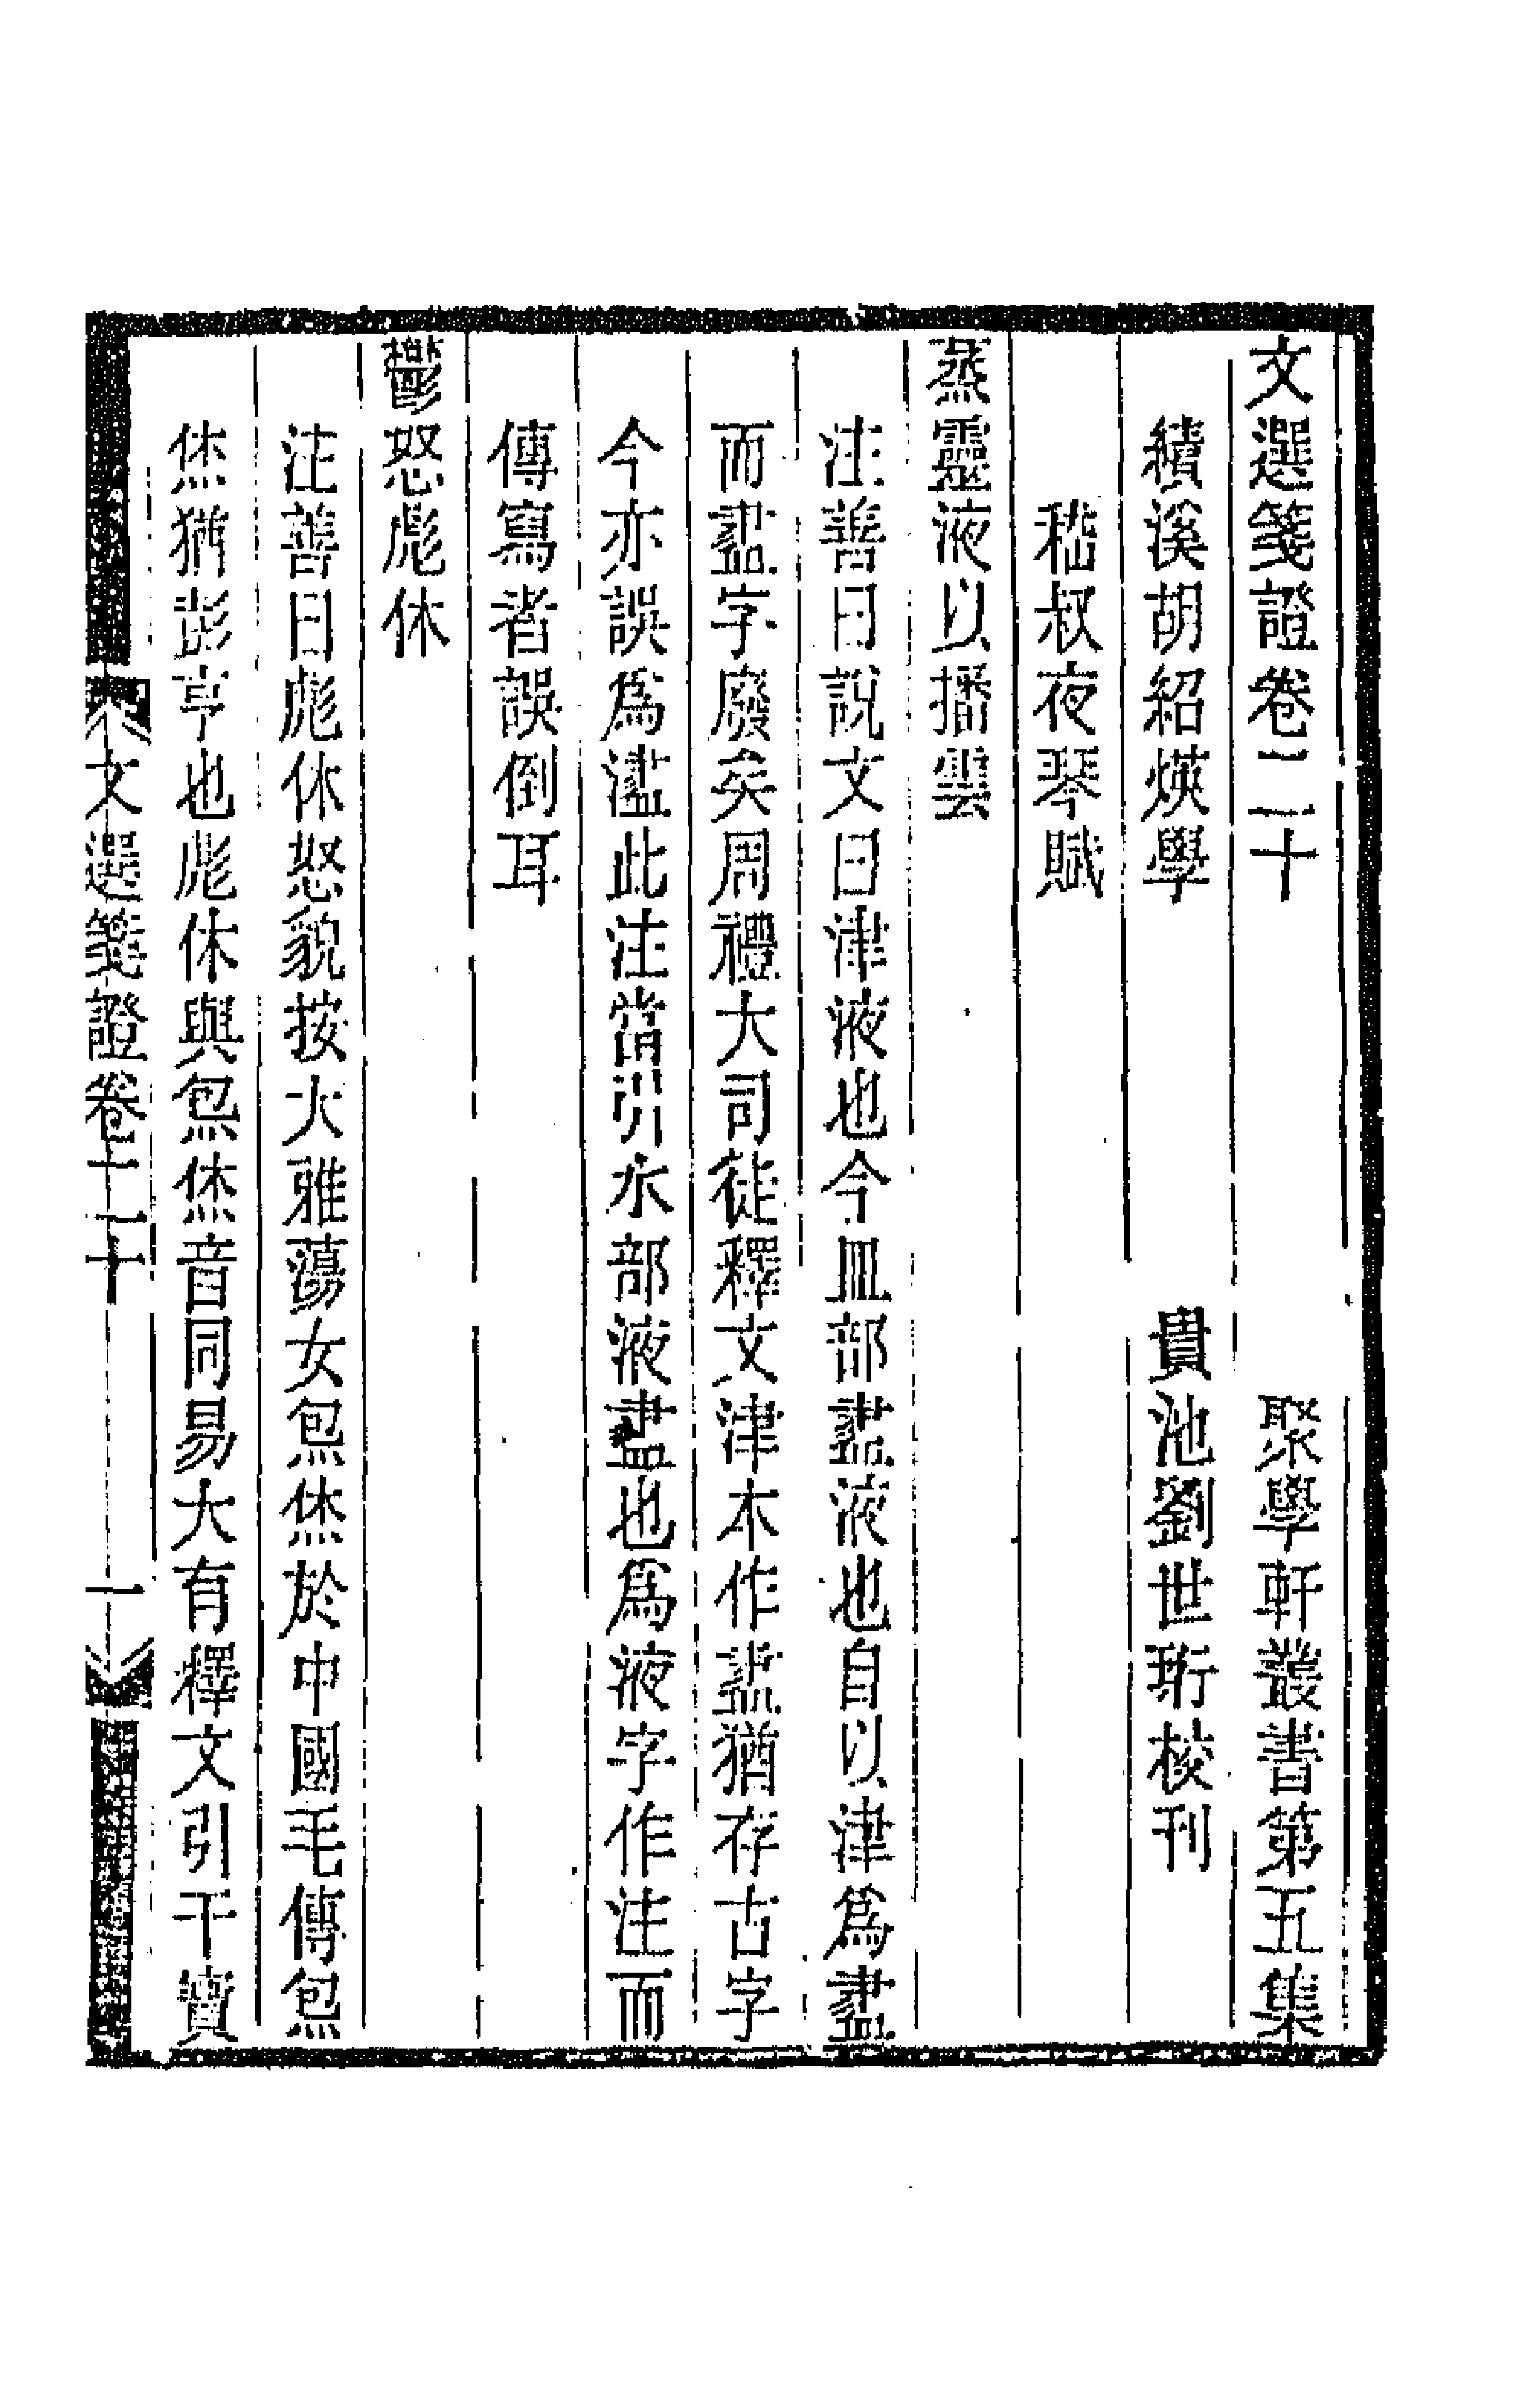 文選箋證卷二十 聚學軒叢書第五集
績溪胡紹煐學 貴池劉世珩校刊
嵇叔夜琴賦
蒸靈液以播雲
注善曰說文曰津液也今皿部𧗁液也自以津爲𧗁
而𧗁字廢矣周禮大司徒釋文津本作𧗁猶存古字
今亦誤爲濫此注當引水部液𧗁也爲液字作注而
傳寫者誤倒耳
鬱怒彪休
注善曰彪休怒貌按大雅蕩女炰烋於中國毛傳炰
烋猶彭亨也彪休與炰烋音同易大有釋文引干寶
文選箋證卷二十 一